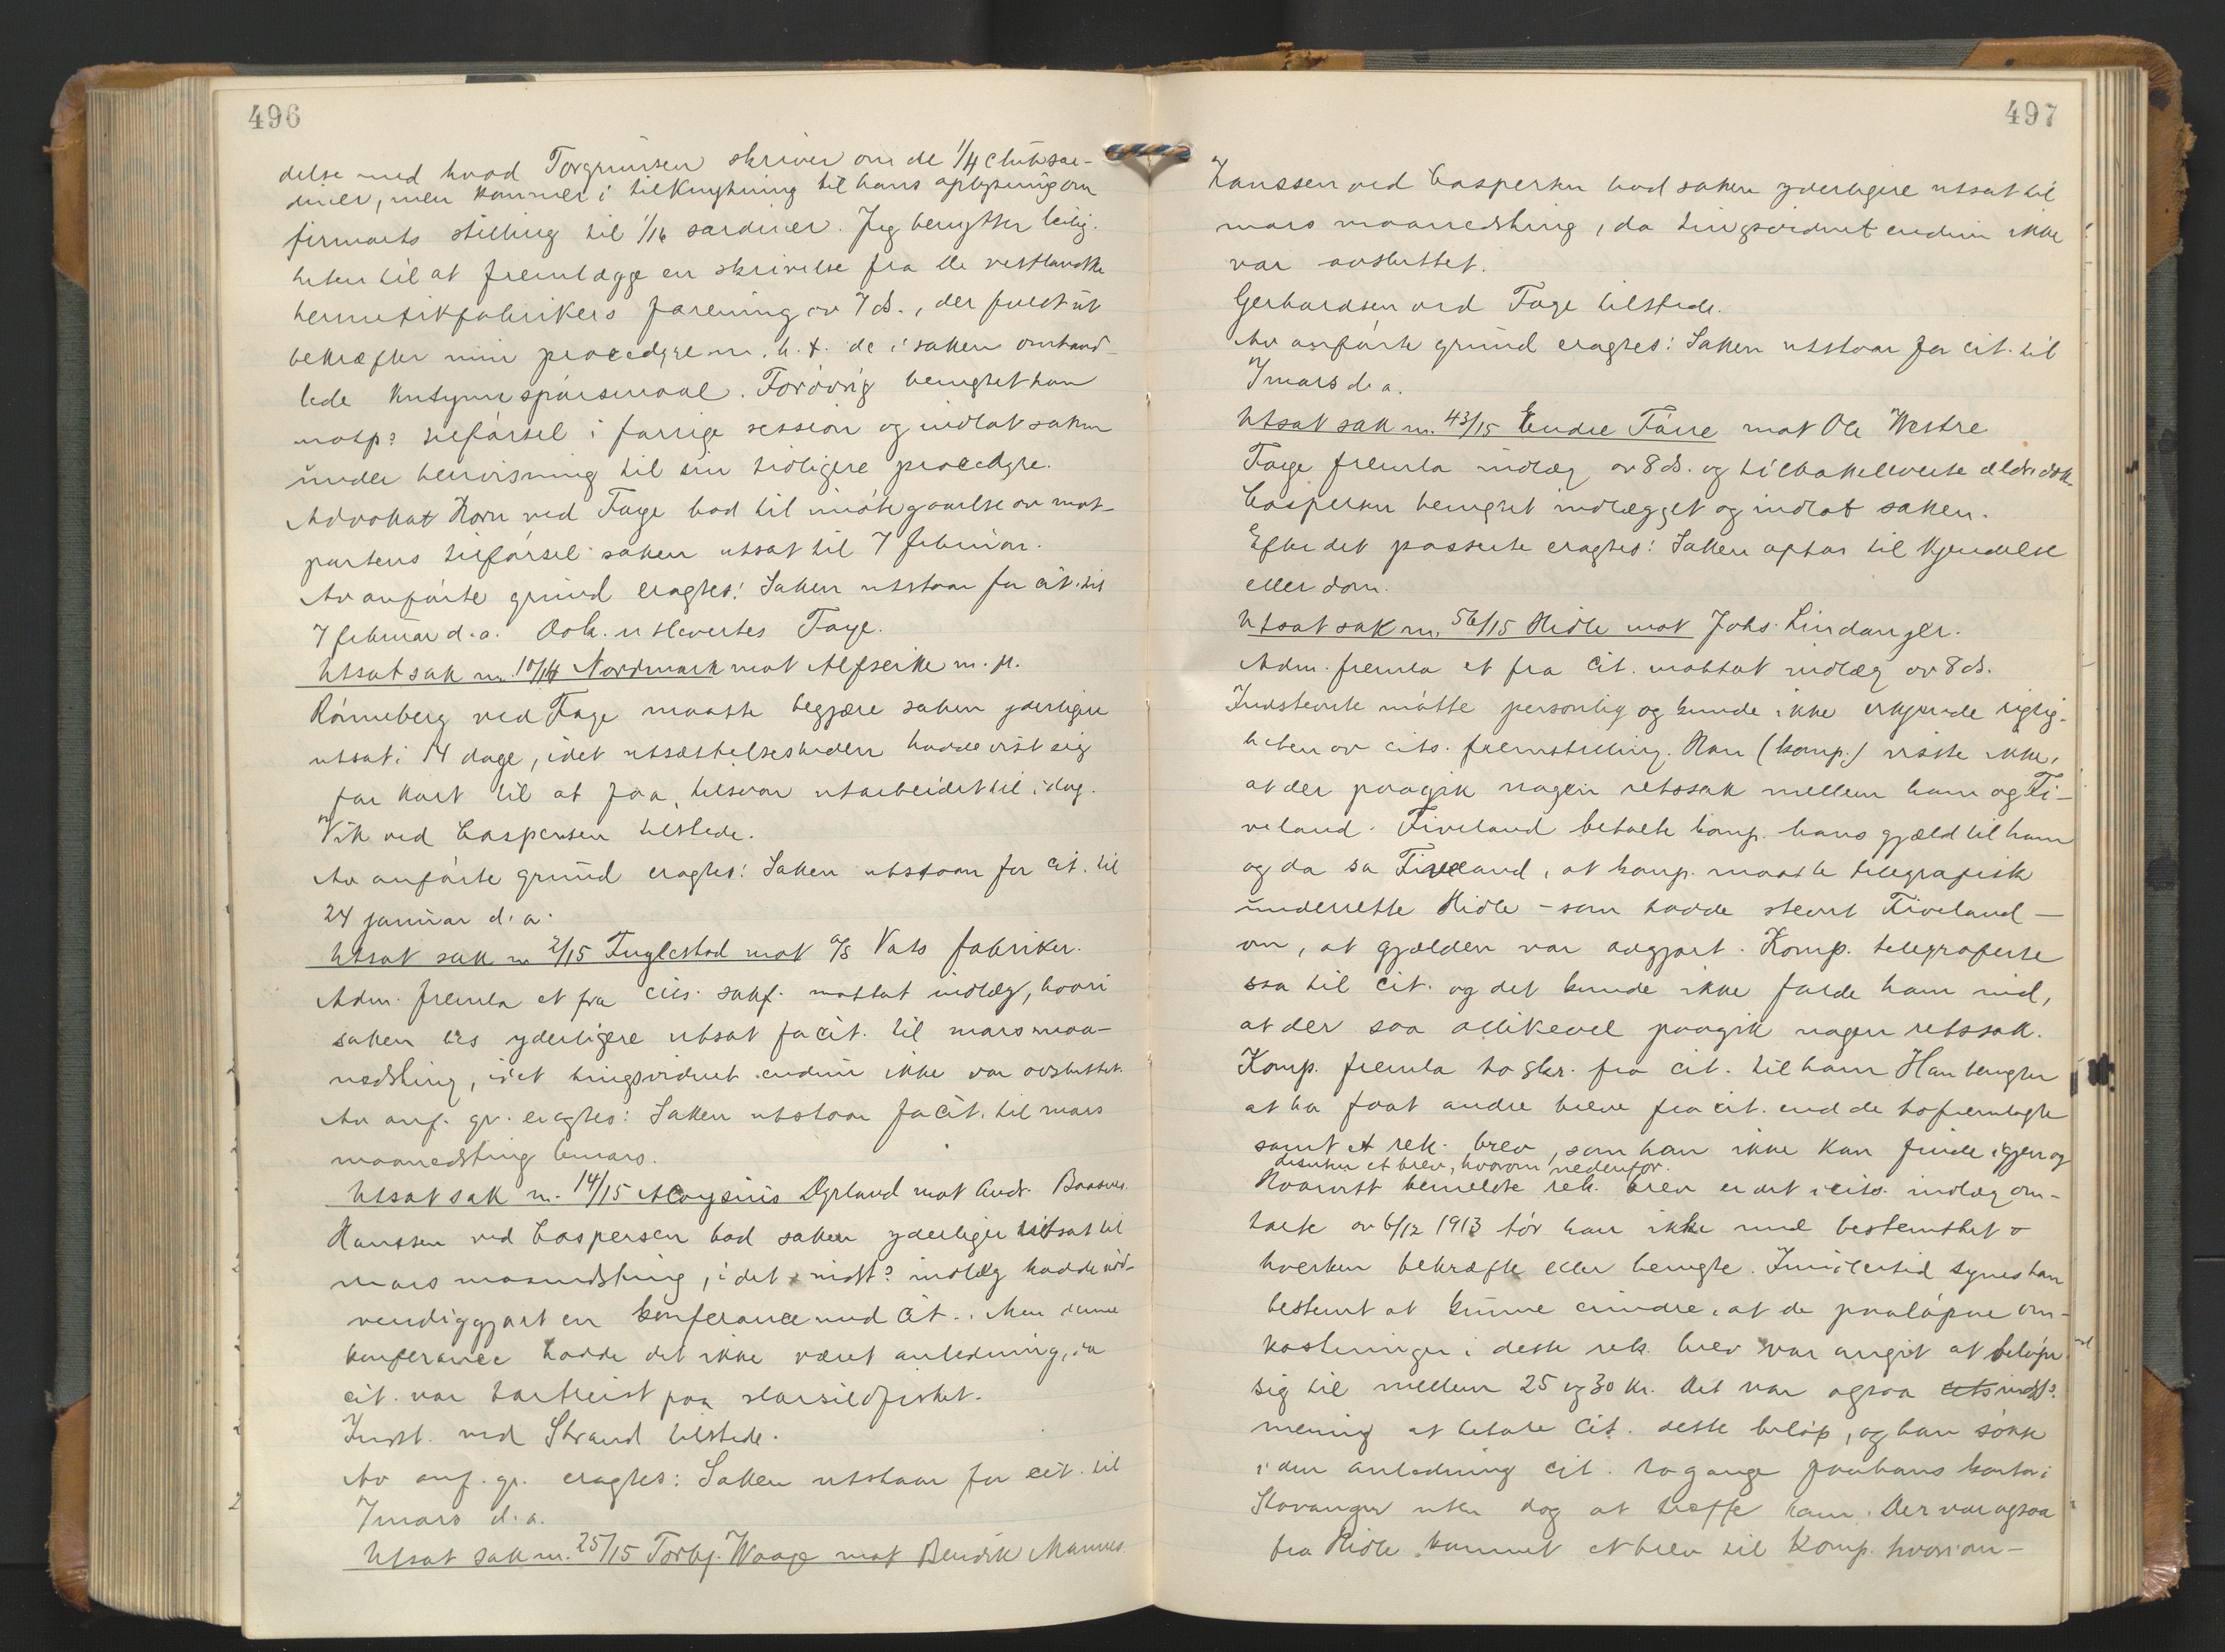 496
delse med hvad Torgrimsen skriver om de 1/4 clubsar-
diner, men kommer i tilknytning til hans oplysning om
firmaets stilling til 1/16 sardiner. Jeg benytter leilig-
heten til at fremlægge en skrivelse fra De vestlandske
hermetikfabrikers forening av 7 ds., der fuldt ut
bekræfter min procedyre m. h. t. de i saken omhand-
lede kutyme spörsmaal. Forövrig benegtet han
motp? tilförsel i forrige session og indlot saken
under henvisning til sin tidligere procedyre.
Advokat Horn ved Faye bad til imötegaaelse av mot-
partens tilförsel saken utsat til 7 februar.
Av anförte grund eragtes: Saken utstaar for cit. til
7 februar d. a. Dok. utlevertes Faye.
Utsat sak nr. 10/14 Nordmark mot Alfseike m. fl.
Rönneberg ved Faye maatte begjære saken yderligere
utsat i 14 dage, idet utsættelsestiden hadde vist sig
for kort til at faa tilsvar utarbeidet til idag.
Vik ved Caspersen tilstede.
Av anförte grund eragtes: Saken utstaar for cit. til
24 januar d. a.
Utsat sak nr 2/15 Fuglestad mot A/S Vats fabriker.
Adm. fremla et fra cits. sakf. mottat indlæg, hvori
saken bes yderligere utsat for cit. til mars maa-
nedsting, idet tingsvidnet endnu ikke var avsluttet.
Av anf. gr. eragtes: Saken utstaar for cit. til mars
maanedsting
Utsat sak nr. 14/15 Aloysius Dyrland mot Andr. Baasnes.
Hanssen ved Caspersen bad saken yderligere utsat til
mars maanedsting, idet indst? indlæg hadde nöd-
vendiggjort en konferance med cit. Men denne
konferance hadde det ikke været anledning, da
cit. var bortreist paa storsildfisket.
Indst. ved Strand tilstede.
Av anf. gr. eragtes: Saken utstaar for cit. til
7 mars d. a.
Utsat sak nr. 25/15 Torbj. Waage mot Bendik Mannes
497
Hanssen ved Caspersen bad saken yderligere utsat til
mars maanedsting, da tingsvidnet endnu ikke
var avsluttet.
Gerhardsen ved Faye tilstede.
Av anförte grund eragtes: Saken utstaar for cit. til
7 mars d. a.
Utsat sak nr. 43/15 Endre Törre mot Ole Westre
Faye fremla indlæg av 8 ds. og tilbakeleverte ældre dok.
Caspersen benegtet indlægget og indlot saken.
Efter det passerte eragtes: Saken optas til kjendelse
eller dom.
Utsat sak nr. 56/15 Hidle mot Johs. Lindanger.
Adm. fremla et fra cit. mottat indlæg av 8 ds.
Indstevnte mötte personlig og kunde ikke erkjende rigtig-
heten av cits. fremstilling. Han (komp.) visste ikke,
at der paagik nogen retssak mellem ham og Fi-
veland. Fiveland betalte komp. hans gjæld til ham
og da sa Fiveland, at komp. maatte telegrafisk
underrette Hidle - som hadde stevnt Fiveland -
om, at gjælden var avgjort. Komp. telegraferte
saa til cit. og det kunde ikke falde ham ind,
at der saa allikevel paagik nogen retssak.
Komp. fremla to skr. fra cit. til ham. Han benegter
at ha faat andre breve fra cit. end de to fremlagte
samt et rek. brev, som han ikke kan finde igjen og
desuten et brev, hvorom nedenfor.
Hvorvidt bemeldte rek. brev er det i cits. indlæg om-
talte av 6/12 1913 tör han ikke med bestemthet
hverken bekræfte eller benegte. Imidlertid synes han
bestemt at kunne erindre, at de paalöpne om-
kostninger i dette rek. brev var angit at belöpe
sig til mellem 25 og 30 kr. Det var ogsaa cits indst?
mening at betale cit. dette belöp, og han sökte
i den anledning cit. to gange paa hans kontor i
Stavanger uten dog at træffe ham. Der var ogsaa
fra Hidle kommet et brev til komp. hvori an-